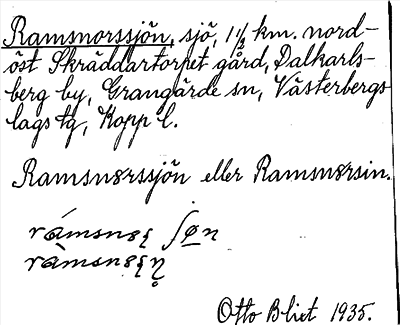 Ramsnorssjön, sjö, 1½ km. nord-
öst Skräddartorpet gård, Dalkarls-
berg by, Grangärde sn, Västerbergs
lags tg, Kopp l.
Ramsnørssjön eller Ramsnørsin.
Otto Blixt 1935.